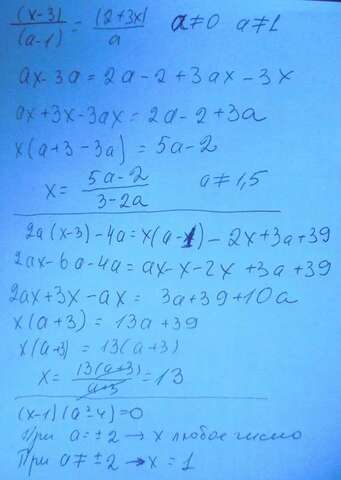 (x-3)/(a-1) = (2+3x)/a a≠0 a≠1
ax-3a=2a-2+3ax-3x
ax+3x-3ax=2a-2+3a
x(a+3-3a)=5a-2
x= (5a-2)/(3-2a) a≠1,5
2a(x-3)-4a=x(a-1)-2x+3a+39
2ax-6a-4a=ax-x-2x+3a+39
2ax+3x-ax= 3a+39+10a
x(a+3)= 13a+39
x(a+3)= 13(a+3)
x= 13(a+3)/(a+3) =13
(x-1)(a²-4)=0
При a=±2 → x любое число
При a≠±2 → x=1